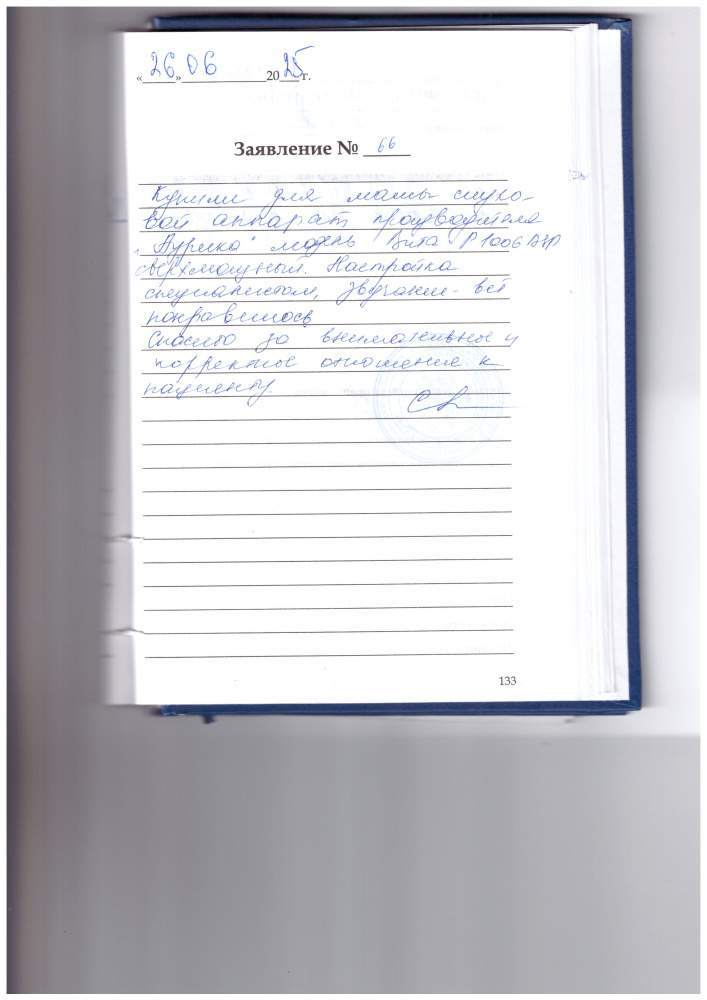 «26» 06 2025 г.
Заявление № 66
Купили для мамы слухо-
вой аппарат производителя
"Аурика" модель Вита P1006
сверхмощный. Настройка
специалистом, звучание - всё
понравилось
Спасибо за внимательное и
корректное отношение к
пациенту.
133